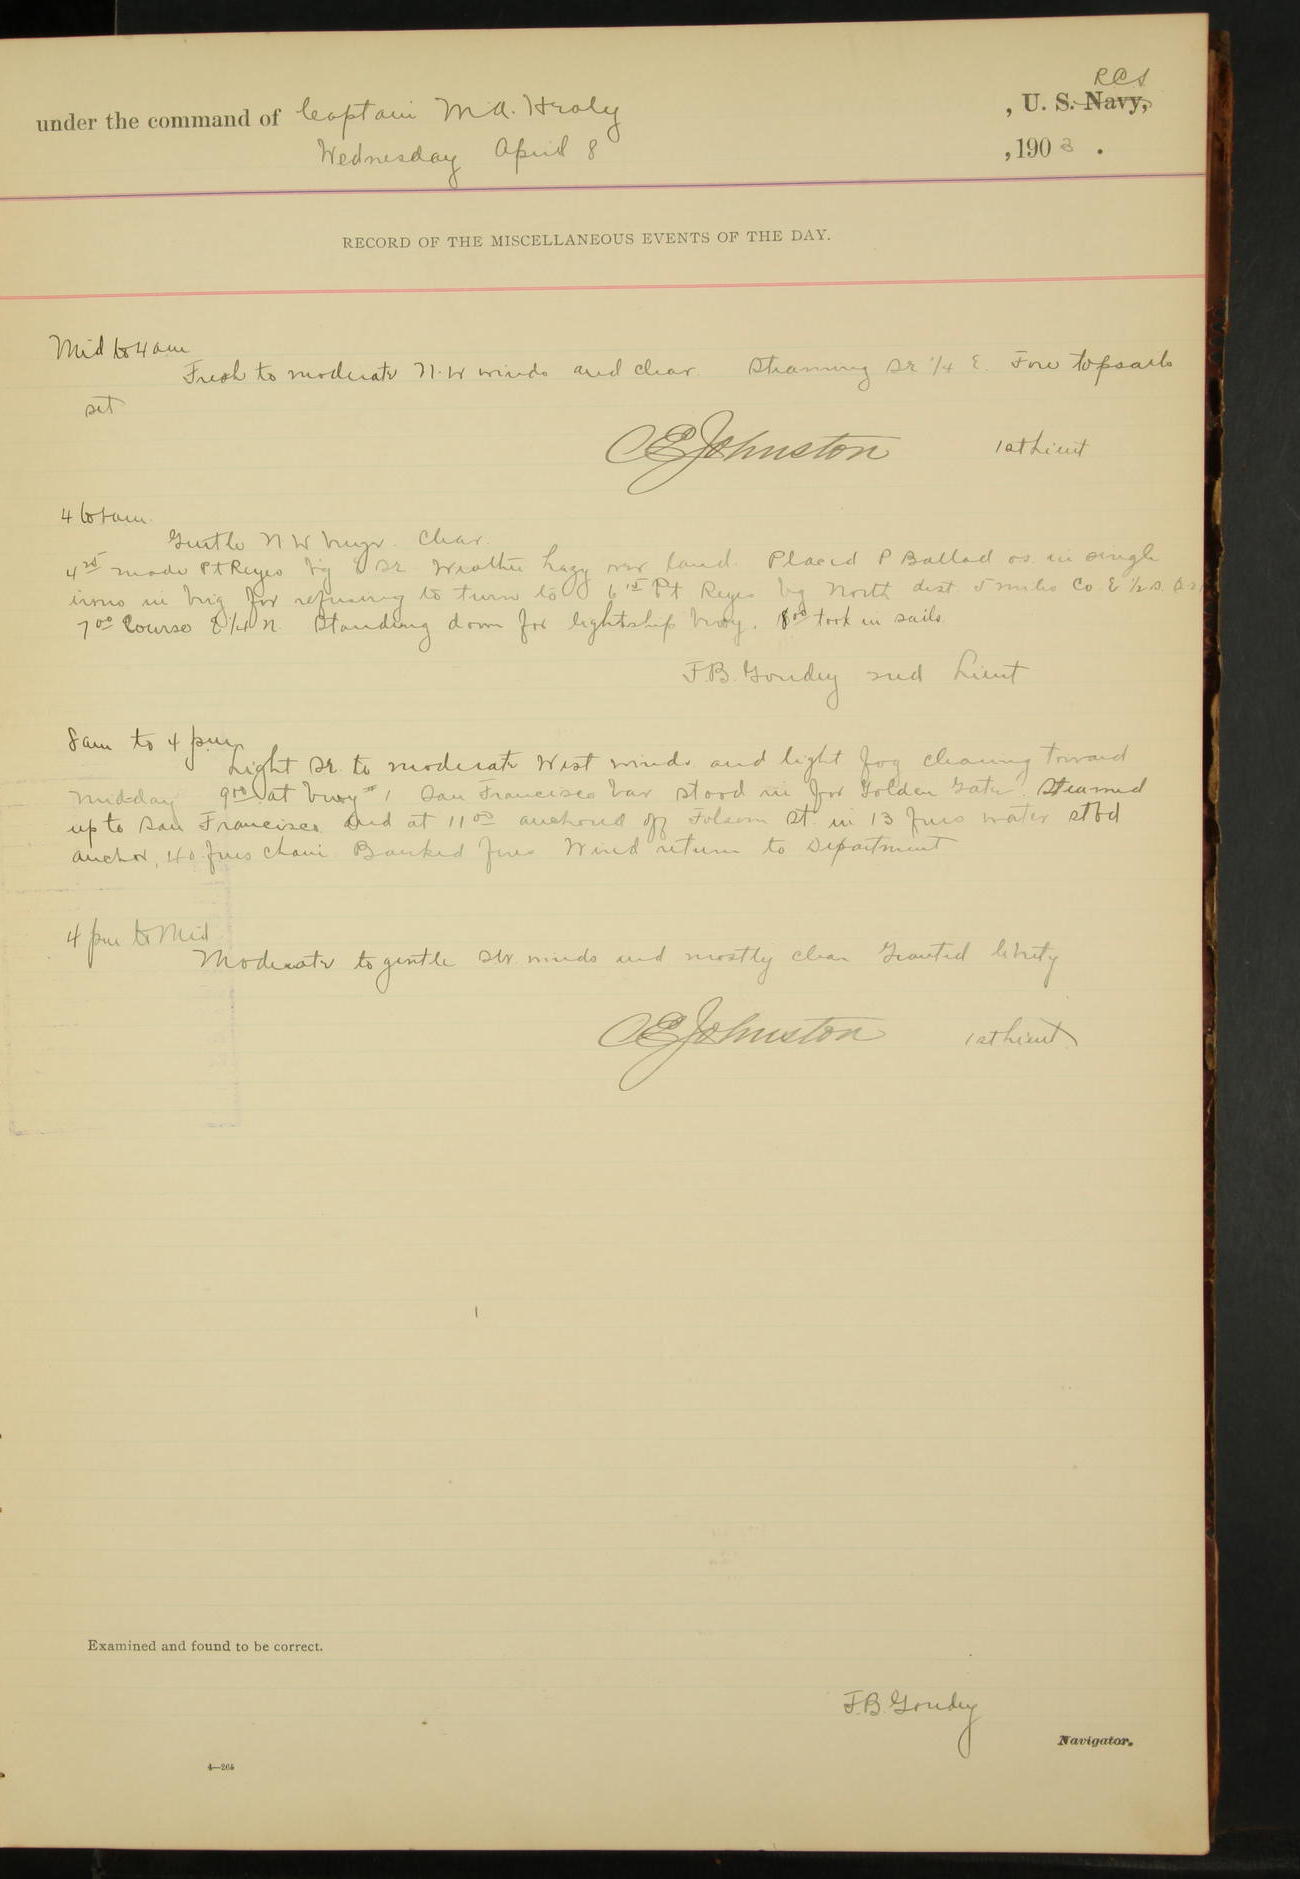 RCS
under the command of Captain M.A. Healy , U. S. Navy,
Wednesday April 8 , 1903 .
RECORD OF THE MISCELLANEOUS EVENTS OF THE DAY.
Mid to 4 am
Fresh to moderate N.W winds and clear. Steaming SE 1/4 E. Fore topsails
set
CEJohnston 1st Lieut
4 to 8 am.
Gentle N W breeze. Clear.
made Pt Reyes bg SE. Weather hazy over land. Placed P Ballad os. in single
irons in brig for refusing to turn to 6 15 Pt Reyes bg North dist 5 miles Co E 1/2 S.
7 00 Course E 1/4 N. Standing down for lightship buoy. 8 00 took in sails
F.B. Goudey 2nd Lieut
8 am to 4 pm
Light SE. to moderate West winds and light fog clearing toward
midday at buoy #1 San Francisco bar stood in for Golden Gate. Steamed
up to San Francisco and at 11 00 anchored off Folsom St. in 13 fms water stbd
anchor, 40 fms chain. Banked fires Wired return to Department
4 pm to Mid
Moderate to gentle winds and mostly clear Granted liberty
CEJohnston 1st Lieut
Examined and found to be correct.
F.B. Goudey
Navigator.
4—264